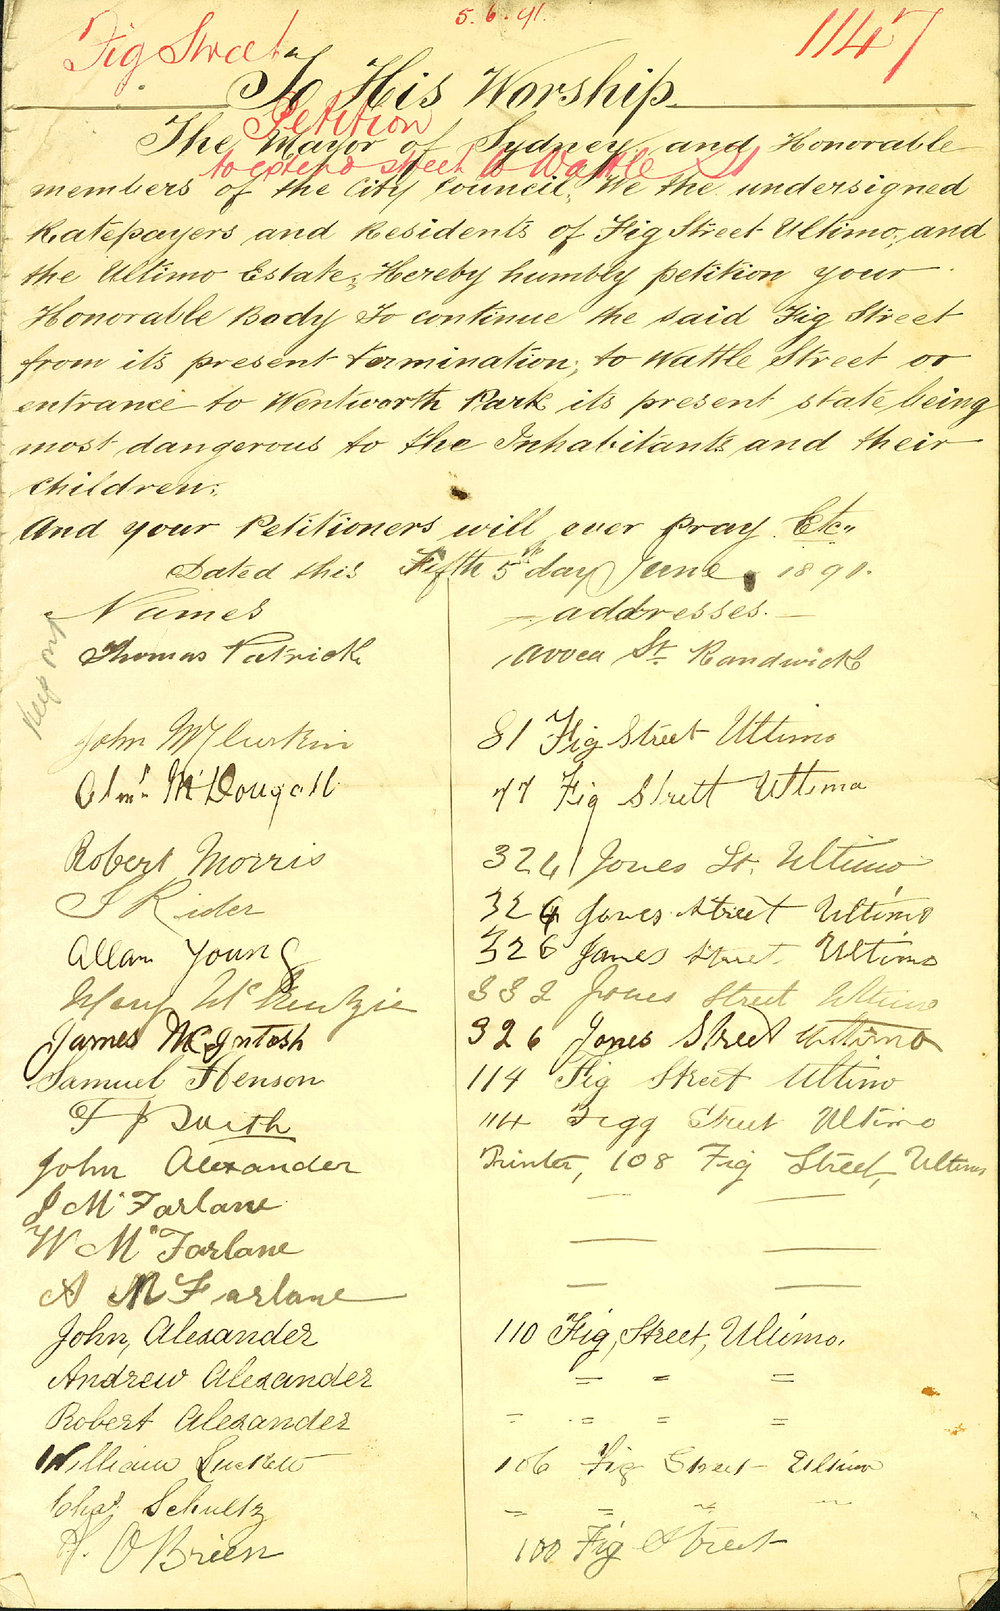 5.6.91.
Fig Street
1147
To His Worship
Petition
The Mayor of Sydney and Honorable
to extend street to Wattle St
members of the City Council, We the undersigned
Ratepayers and Residents of Fig Street Ultimo, and
the Ultimo Estate, Hereby humbly petition your
Honorable Body To continue the said Fig Street
from its present termination, to Wattle Street or
entrance to Wentworth Park its present state being
most dangerous to the Inhabitants and their
children.
And your Petitioners will ever pray Etc.,
Dated this Fifth 5th day June 1891.
Names addresses.
Thomas Patrick Avoca St. Randwick
Keep out
John 81 Fig Street Ultimo
McDougall 77 Fig Strett Ultima
Robert Morris 326 Jones St. Ultimo
S Rider 326 Jones Street Ultimo
Allan Young 326 James Street Ultimo
Mary McKenzie 332 Jones Street Ultimo
James McIntosh 326 Jones Street Ultimo
Samuel Henson 114 Fig Street Ultimo
114 Figg Street Ultimo
John Alexander Printer, 108 Fig Street, Ultimo
J McFarlane — —
W McFarlane — —
A McFarlane — —
John, Alexander 110 Fig, Street, Ultimo.
Andrew Alexander = = =
Robert Alexander = = = =
William 106 Fig Street Ultimo
Chas Schultz = = " "
H. O'Brien 100 Fig Street